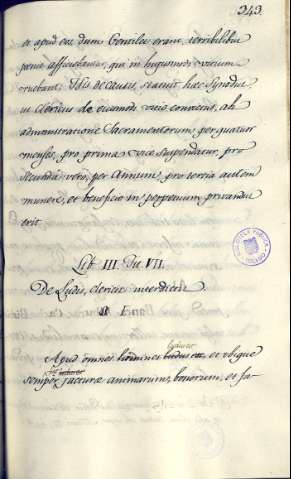 343.
et apud eos dum Gentiles erant, terribilibus
poenis afficiebantur, qui in hujusmodi vicium
ruebant. His de causis, statuit haec Synodus,
ut clericus de ejusmodi vicio convictus, ab
administratione Sacramentorum, per quatuor
menses, pro prima vice suspendatur, pro
secunda vero, per Annum, pro tertia autem
munere, et beneficio in perpetuum privandus
erit.
Lib. III. Tit. VII.
De Ludis, clericis interdictis
Apud omnes homines et ubique
semper jacturae animarum, bonorum, et fa-